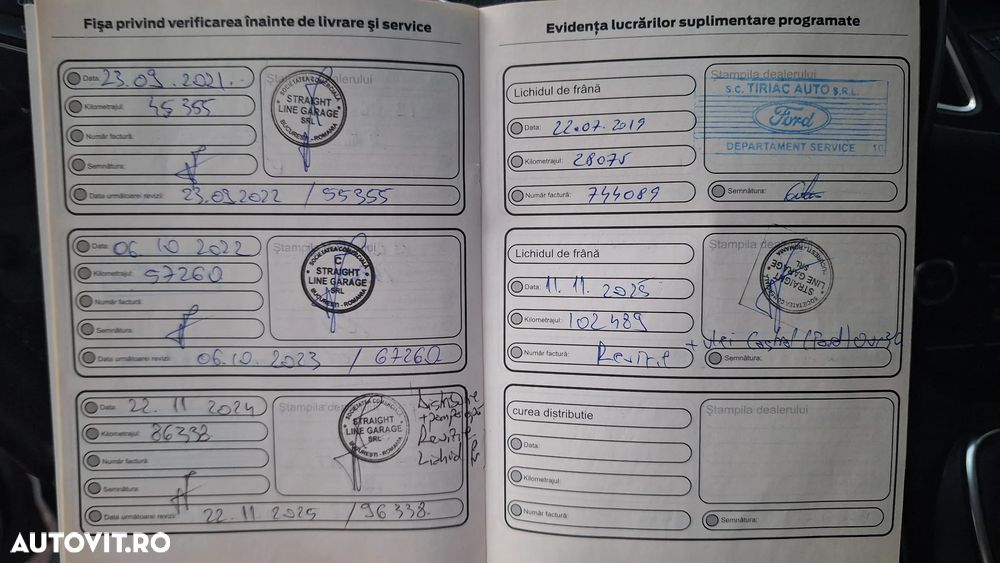 Fișa privind verificarea înainte de livrare și service
Data: 23.09.2021
Ștampila dealerului
Kilometrajul: 45355
SOCIETATEA COMERCIALA
STRAIGHT
LINE GARAGE
SRL
BUCUREȘTI - ROMANIA
Număr factură:
Semnătura:
Data următoarei revizii: 23.09.2022 / 55355
Data: 06 10 2022
Ștampila dealerului
Kilometrajul: 57260
SOCIETATEA COMERCIALA
C
STRAIGHT
LINE GARAGE
SRL
BUCUREȘTI - ROMANIA
Număr factură:
Semnătura:
Data următoarei revizii: 06.10.2023 / 67260
Data: 22. 11 2024
Ștampila dealerului
Kilometrajul: 86338
SOCIETATEA COMERCIALA
STRAIGHT
LINE GARAGE
SRL
BUCUREȘTI - ROMANIA
Distribuție
+ pompa apa
Revizie
Lichid
Număr factură:
Semnătura:
Data următoarei revizii: 22.11.2025 / 96338.
Evidența lucrărilor suplimentare programate
Lichidul de frână
Ștampila dealerului
S.C. ȚIRIAC AUTO S.R.L.
Ford
DEPARTAMENT SERVICE 10
Data: 22.07.2019
Kilometrajul: 28075
Număr factură: 744089
Semnătura:
Lichidul de frână
Ștampila dealerului
SOCIETATEA COMERCIALA
STRAIGHT
LINE GARAGE
SRL
BUCUREȘTI - ROMANIA
Data: 11. 11. 2025
Kilometrajul: 102489
Număr factură: Revizie + Ulei Castrol (Ford) 0W30
Semnătura:
curea distributie
Ștampila dealerului
Data:
Kilometrajul:
Număr factură:
Semnătura:
AUTOVIT.RO